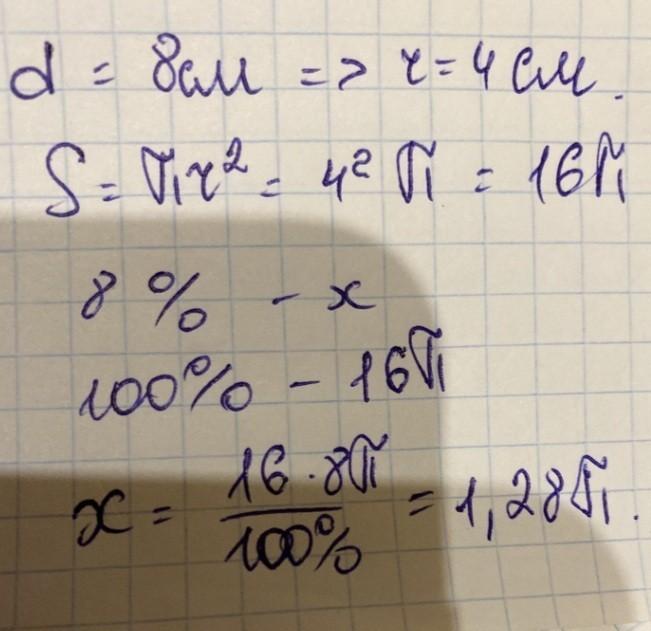 d = 8см => r = 4 см.
S = πr² = 4² π = 16π
8 % - x
100% - 16π
x = 16·8π / 100% = 1,28π.